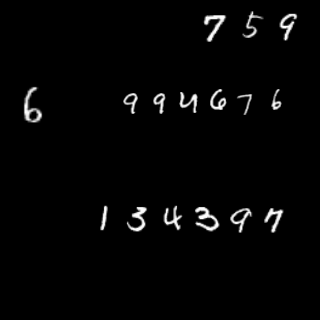 759
6 994676
134397